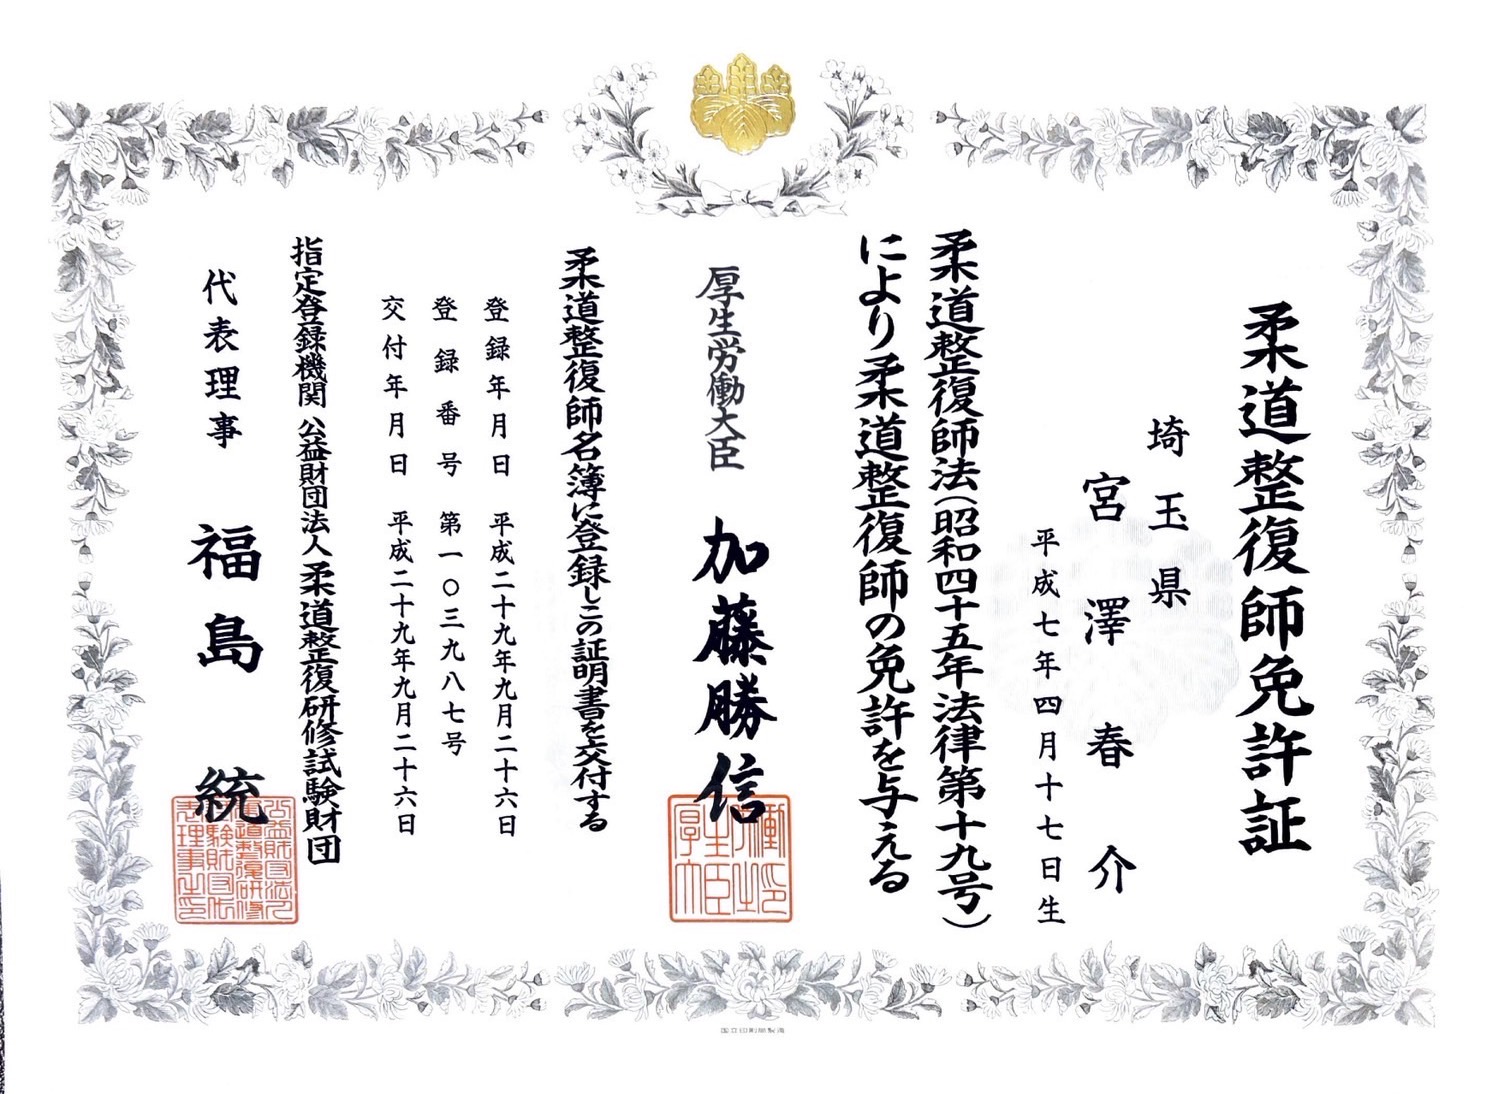 柔道整復師免許証
埼玉県
宮澤春介
平成七年四月十七日生
柔道整復師法(昭和四十五年法律第十九号)
により柔道整復師の免許を与える
厚生労働大臣 加藤勝信
柔道整復師名簿に登録しこの証明書を交付する
登録年月日 平成二十九年九月二十六日
登録番号 第一〇三九八七号
交付年月日 平成二十九年九月二十六日
指定登録機関 公益財団法人柔道整復研修試験財団
代表理事 福島統